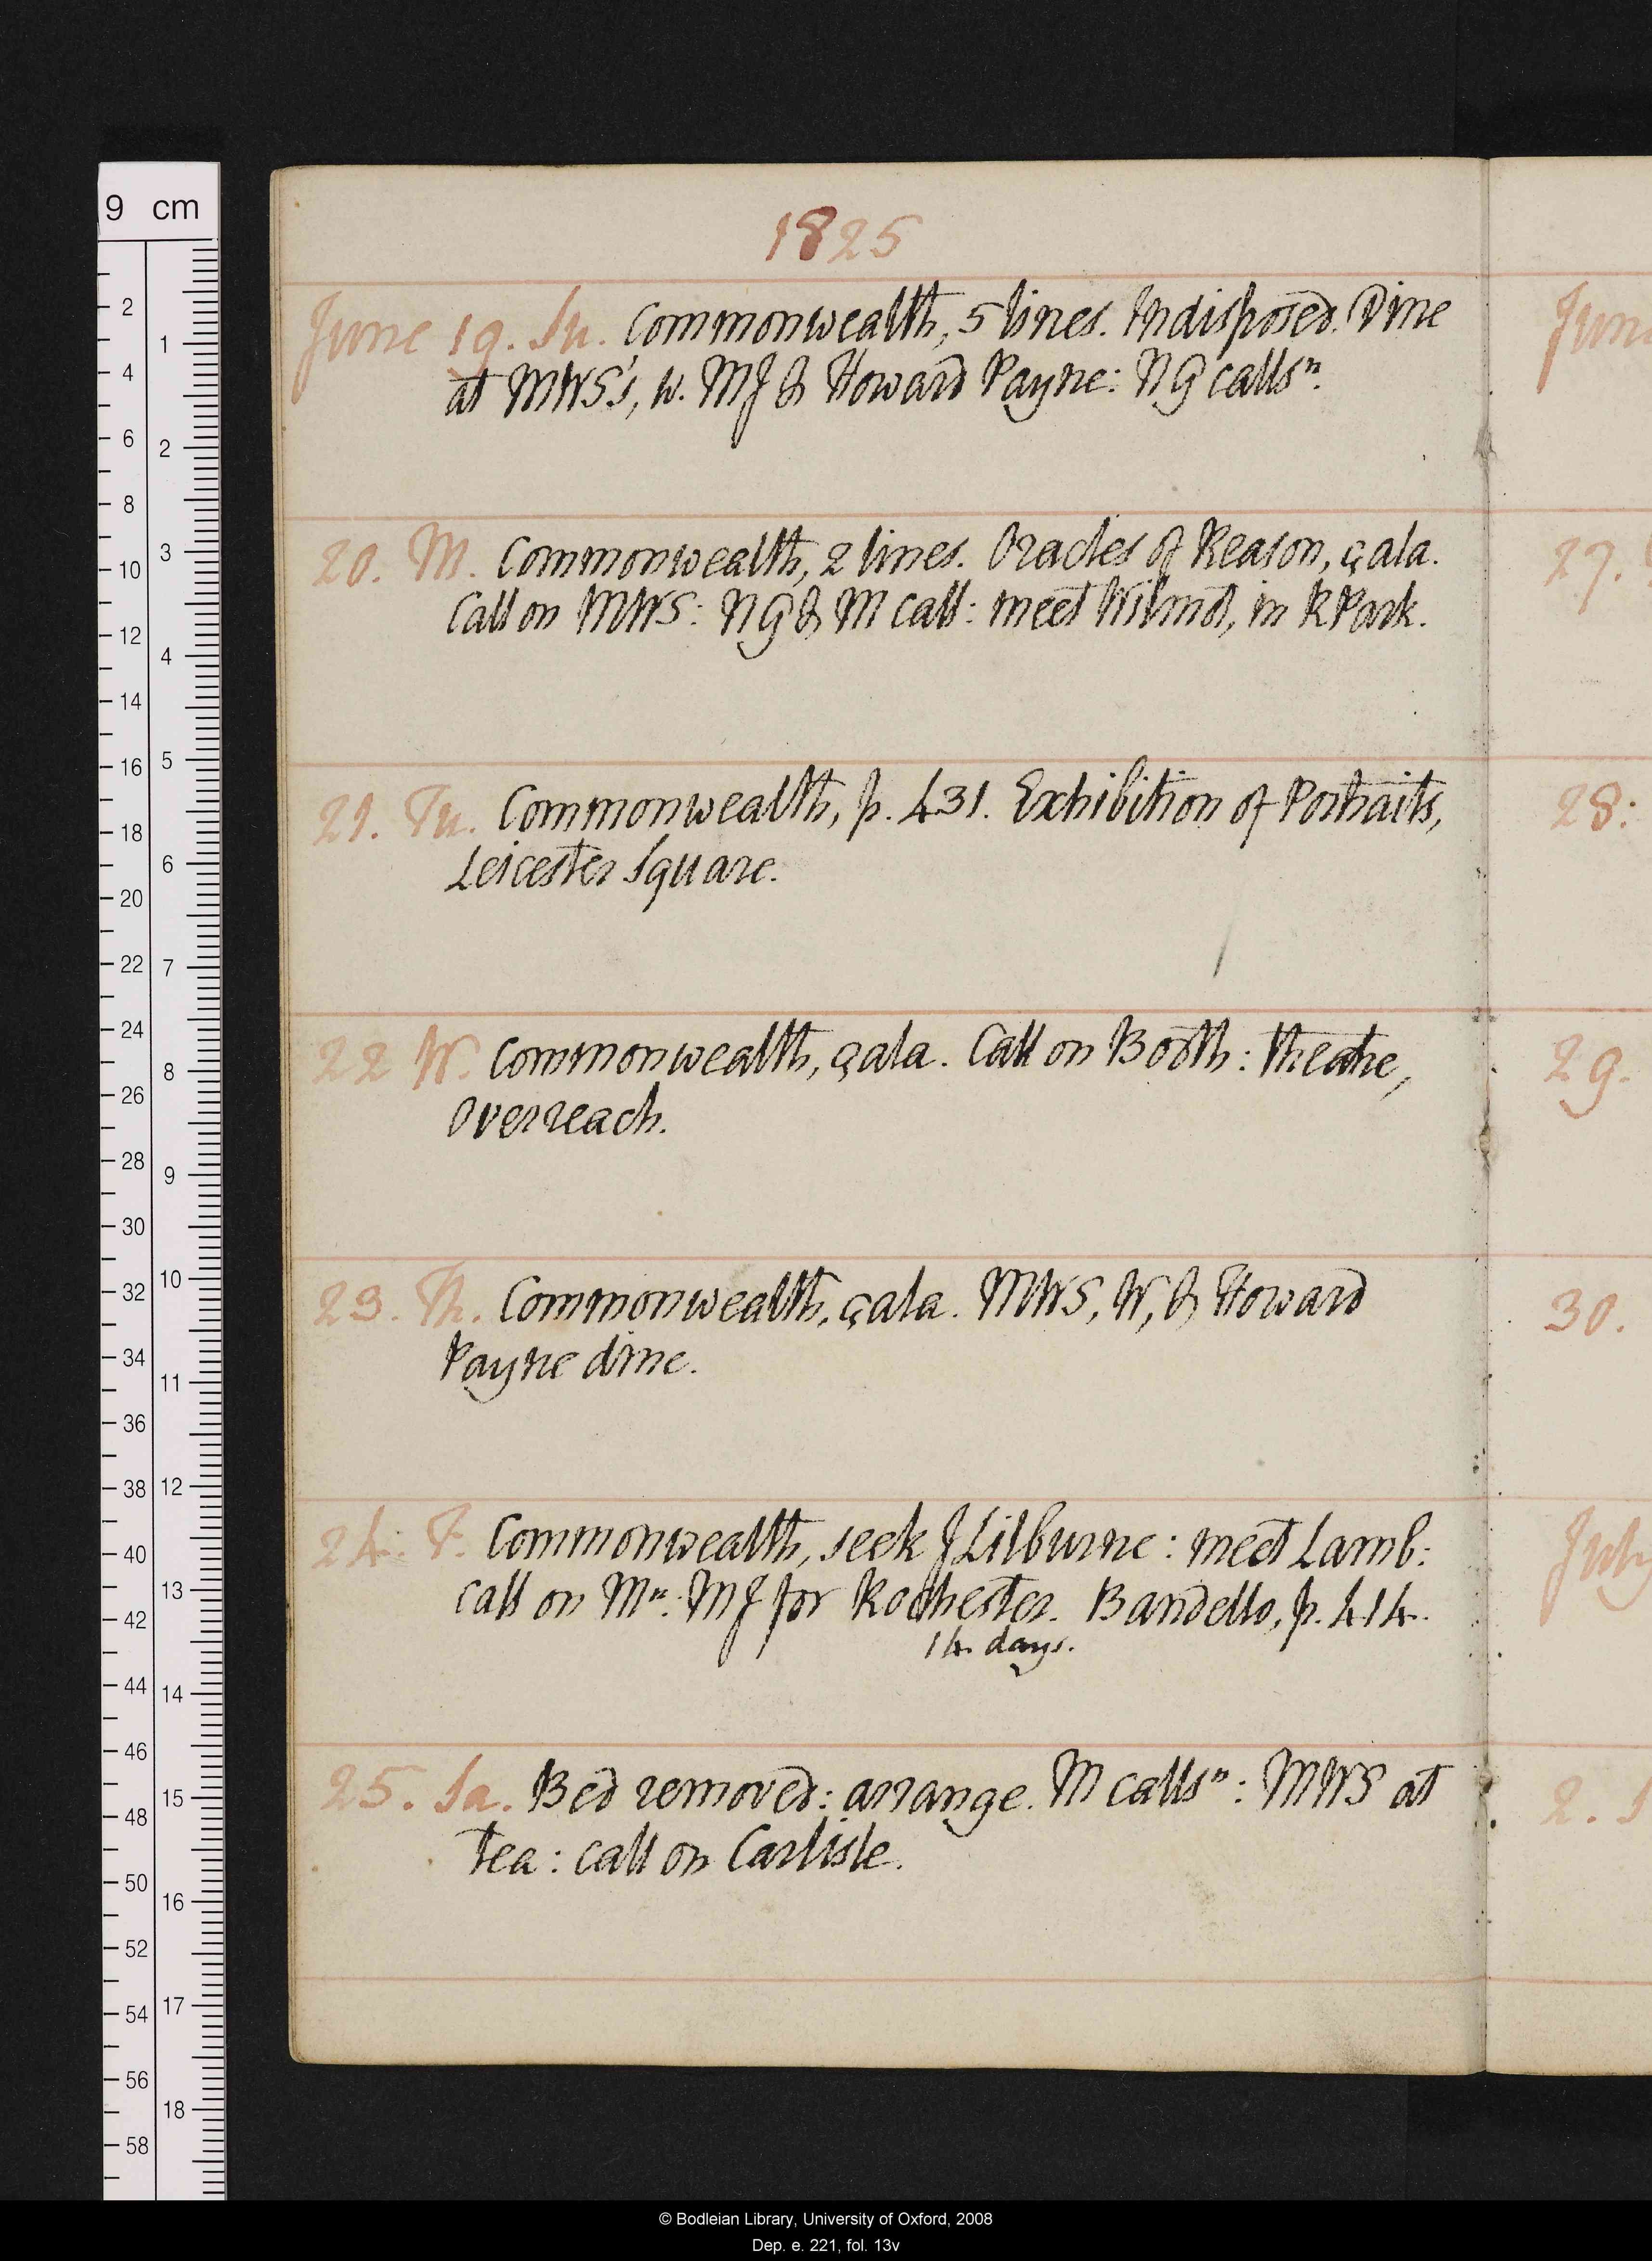 1825
June 19. Su. Commonwealth, 5 lines. Indisposed. Dine
at MWS's, w. MJ & Howard Payne: NG callsⁿ.
20. M. Commonwealth, 2 lines. Oracles of Reason, çala.
Call on MWS: NG & M call: meet Wilmot, in R Park.
21. Tu. Commonwealth, p. 431. Exhibition of Portraits,
Leicester Square.
22 W. Commonwealth, çala. Call on Booth: theatre,
Overreach.
23. Th. Commonwealth, çala. MWS, W, & Howard
Payne dine.
24. F. Commonwealth, seek J Lilburne: meet Lamb:
call on Mⁿ: MJ for Rochester. Bandello, p. 414.
14 days.
25. Sa. Bed removed: arrange. M callsⁿ: MWS at
tea: call on Carlisle.
June
27.
28:
29.
30.
July
2. S
9 cm
2 4 6 8 10 12 14 16 18 20 22 24 26 28 30 32 34 36 38 40 42 44 46 48 50 52 54 56 58
1 2 3 4 5 6 7 8 9 10 11 12 13 14 15 16 17 18
© Bodleian Library, University of Oxford, 2008
Dep. e. 221, fol. 13v